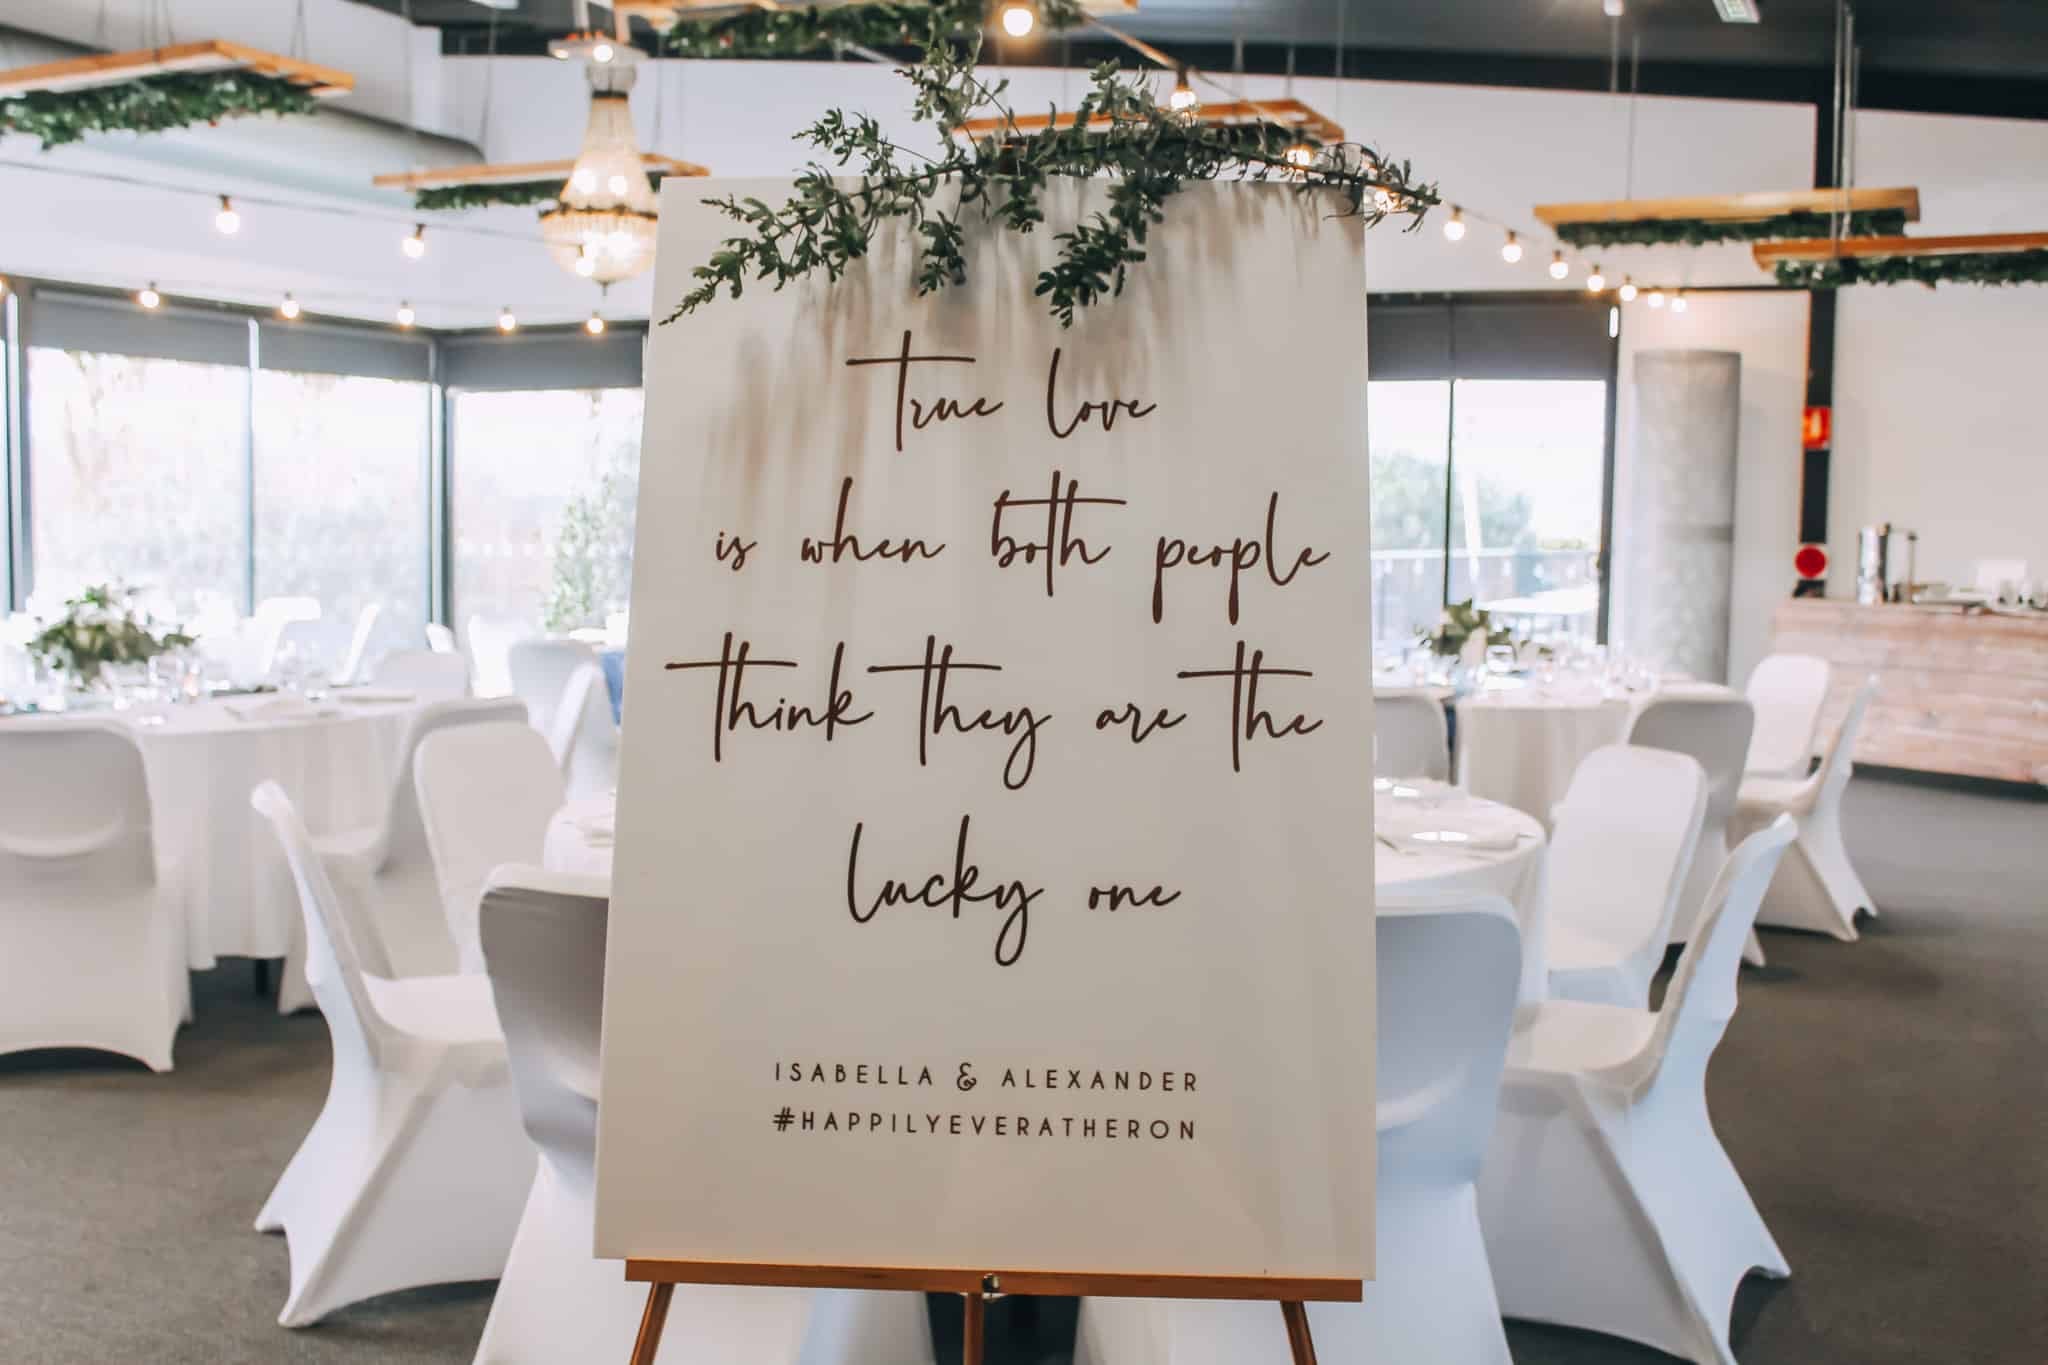 true love
is when both people
think they are the
lucky one
ISABELLA & ALEXANDER
#HAPPILYEVERATHERON